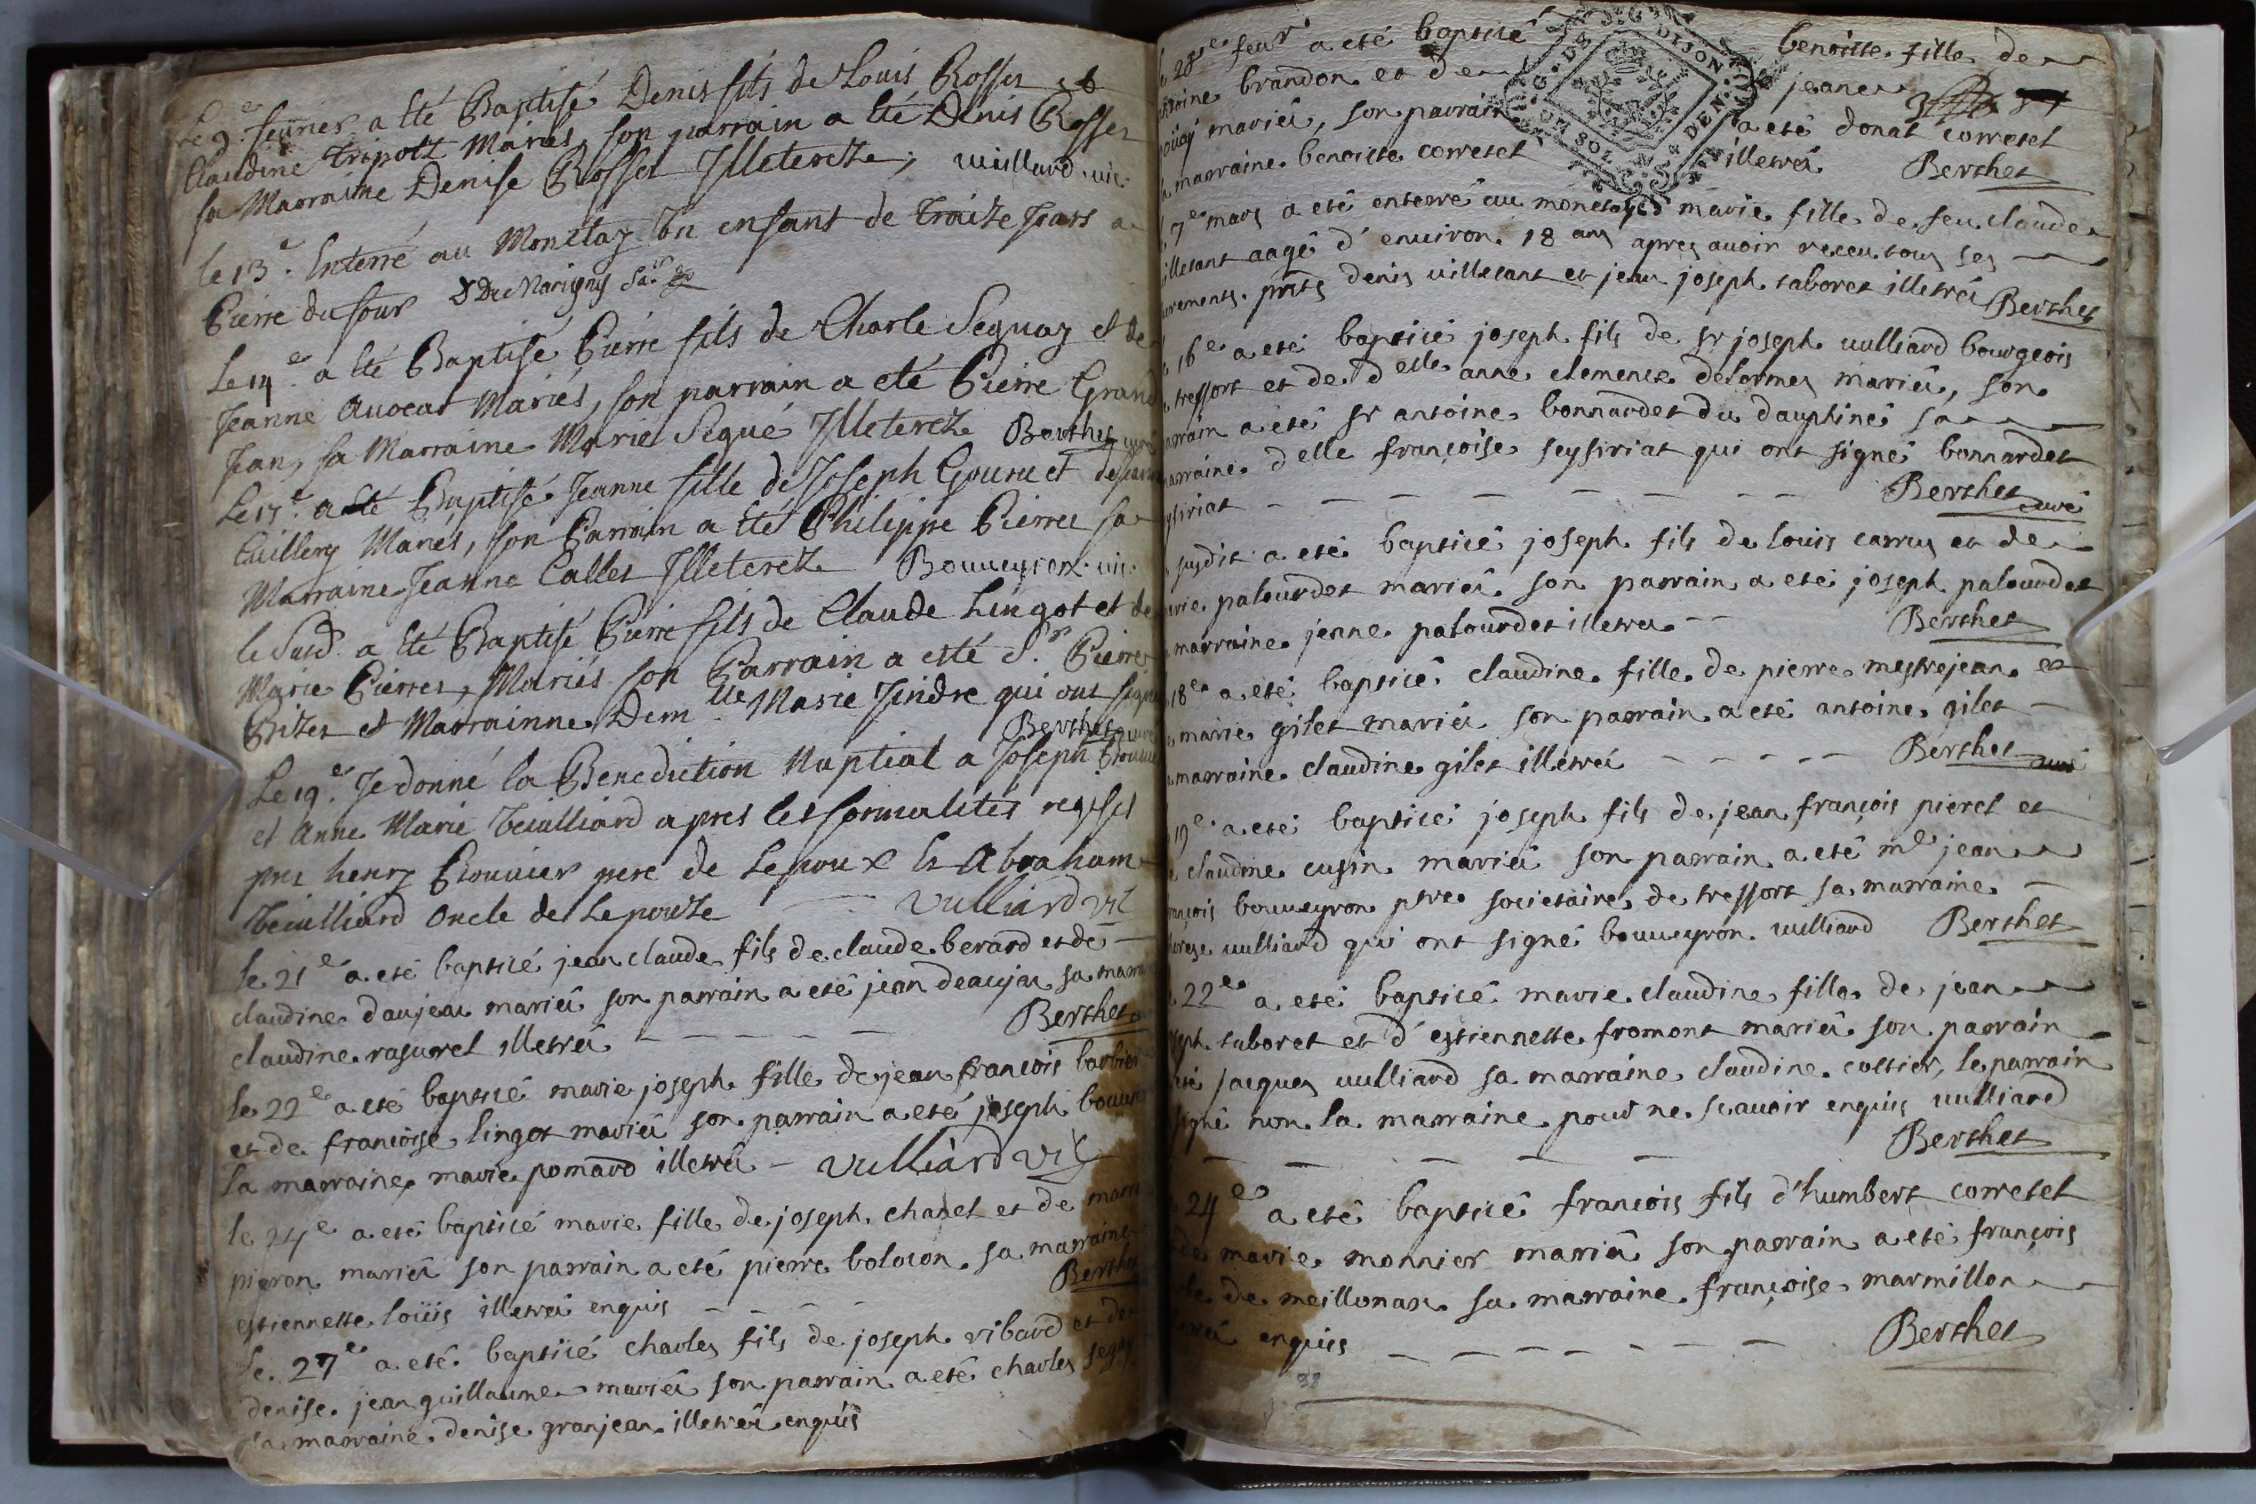 Le 9.e feurier a Eté Baptisé Denis fils de Louis Rosset et
Claudine Tripotz Mariés, son parrain a Eté Denis Rosset
sa Marraine Denise Rosset Illeterez; vuillard vic.
le 13.e Enterré au Monetay un enfant de Traize Jours a
Pierre du four
Le 14.e a Eté Baptisé Pierre fils de Charle Seguaz et de
Jeanne Auocat Mariés, son parrain a eté Pierre Grand
Jean, sa Marraine Marie Segué Illeterez Berthet curé
Le 17.e a eté Baptisé Jeanne fille de Joseph Gouru et de
Cuillery Mariés, son Parrain a Eté Philippe Pierres sa
Marraine Jeanne Calles Illeterez Bouueyron vic.
le Susd. a Eté Baptisé Pierre fils de Claude Lingot et de
Marie Pierres, Mariés son Parrain a esté S.r Pierre
et Marrainne Dem.lle Marie Jindre qui ont signé
Berthet curé
Le 19.e Je donné la Benediction Nuptial a Joseph
et Anne Marie Veuilliard apres les formalités
pnt henry Brouuier pere de Lepoux Et Abraham
Veuilliard Oncle de Lepouze Vulliard Vic
le 21e a eté baptisé jean claude fils de claude berard et de
claudine daujeau mariés son parrain a eté jean deaujau sa marraine
claudine rasurel illetrés Berthet
le 22e a eté baptisé marie joseph fille de jean françois barbier
et de francoise lingot mariés son parrain a eté joseph
la marraine marie pomard illetrés Vulliard Vic
le 24e a eté baptisé marie fille de joseph chanel et de marie
pieron mariés son parrain a eté pierre bolocon sa marraine
estiennette loüis illetrés enquis Berthet
le 27e a eté baptisé charles fils de joseph ribard et de
denise jean guillaume mariés son parrain a eté charles
sa marraine denise granjean illetrés enquis
28e feur a eté baptisé benoitte fille de
brandon et de jeane
mariés, son parrain a eté donat corretet
marraine benoitte corretet illetrés Berthet
7e mars a eté enterré au monetay marie fille de feu claude
villetant aagé d'enuiron 18 ans apres auoir receu tous ses
pnts denis villetant et jean joseph taboret illetrés Berthet
16e a eté baptisé joseph fils de sr joseph vulliard bourgeois
treffort et de delle anne clemence delormes mariés, son
parrain a eté sr antoine bonnardet du dauphiné sa
marraine delle françoise seysiriat qui ont signé bonnardet
seysiriat Berthet curé
susdit a eté baptisé joseph fils de louis carrus et de
marie palourdet mariés son parrain a eté joseph palourdet
marraine jeanne palourdet illetrés Berthet
18e a eté baptisé claudine fille de pierre mestrejean et
marie gilet mariés son parrain a eté antoine gilet
marraine claudine gilet illetrés Berthet curé
19e a eté baptisé joseph fils de jean françois pierel et
claudine cusin mariés son parrain a eté me jean
françois bouueyron ptre societaire de treffort sa marraine
vulliard qui ont signé bouueyron vulliard Berthet
22e a eté baptisé marie claudine fille de jean
joseph taboret et d'estiennette fromont mariés son parrain
eté jacques vulliard sa marraine claudine cottier, le parrain
signé non la marraine pour ne scauoir enquis vulliard
Berthet
24e a eté baptisé françois fils d'humbert corretet
de marie monnier mariés son parrain a eté françois
de meillonas sa marraine françoise marmillon
enquis Berthet
38